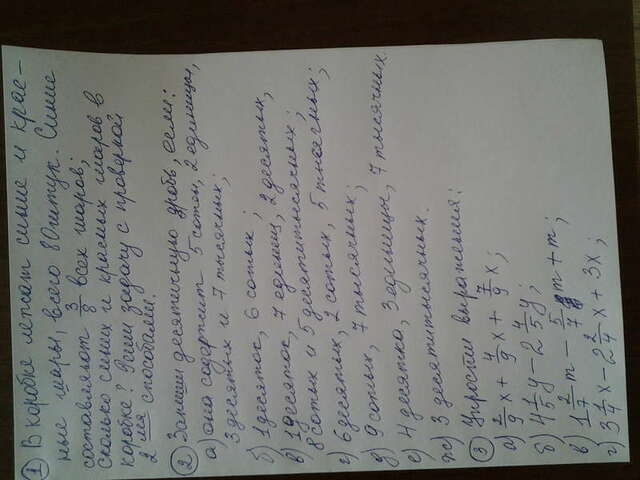 ① В коробке лежат синие и крас-
ные шары, всего 80 штук. Синие
составляют 3/8 всех шаров,
Сколько синих и красных шаров в
коробке? Реши задачу с проверкой
2мя способами.
② Запиши десятичную дробь, если:
а) она содержит 5 сотен, 2 единицы,
3 десятых и 7 тысячных;
б) 1 десяток, 6 сотых;
в) 1 десяток, 7 единиц, 2 десятых,
8 сотых и 5 десятитысячных;
г) 6 десятых, 2 сотых, 5 тысячных;
д) 9 сотых, 7 тысячных;
е) 4 десятка, 3 единицы, 7 тысячных.
ж) 3 десятитысячных.
③ Упрости выражения:
а) 2/9 x + 4/9 x + 7/9 x;
б) 4 1/5 y - 2 4/5 y;
в) 1 2/7 m - 5/7 m + m;
г) 3 1/4 x - 2 2/4 x + 3x;